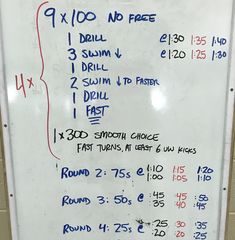 9 x 100 NO FREE
1 DRILL @ 1:30 1:35 1:40
3 SWIM ↓ @ 1:20 1:25 1:30
1 DRILL
4x
2 SWIM ↓ TO FASTER
1 DRILL
1 FAST
1 x 300 SMOOTH CHOICE
FAST TURNS, AT LEAST 6 UW KICKS
ROUND 2: 75s @ 1:10 1:15 1:20
1:00 1:05 1:10
ROUND 3: 50s @ :45 :45 :50
:35 :40 :45
ROUND 4: 25s @ :25 :30 :35
:20 :20 :25